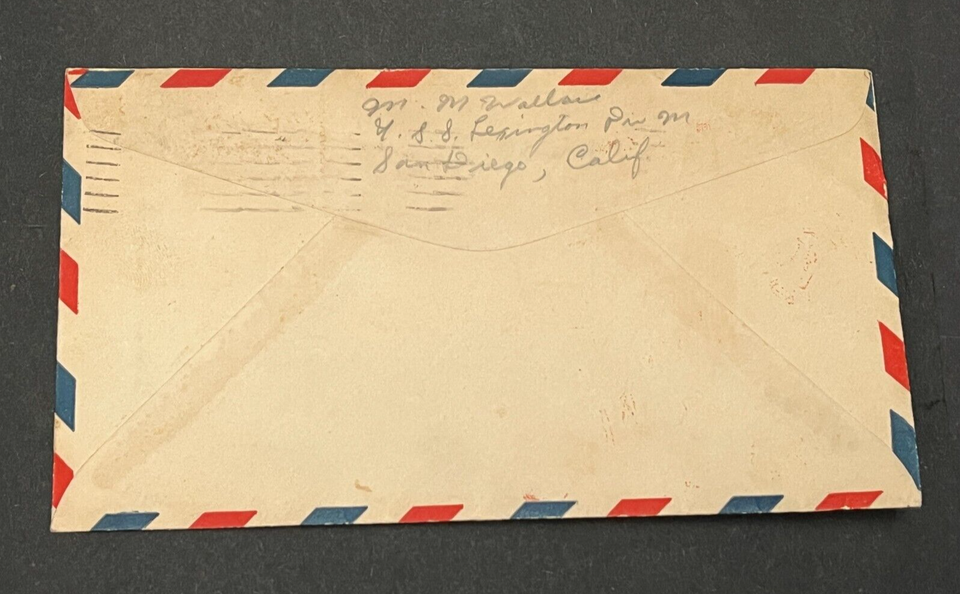 M. M Wallace
U. S. S. Lexington Div M
San Diego, Calif.